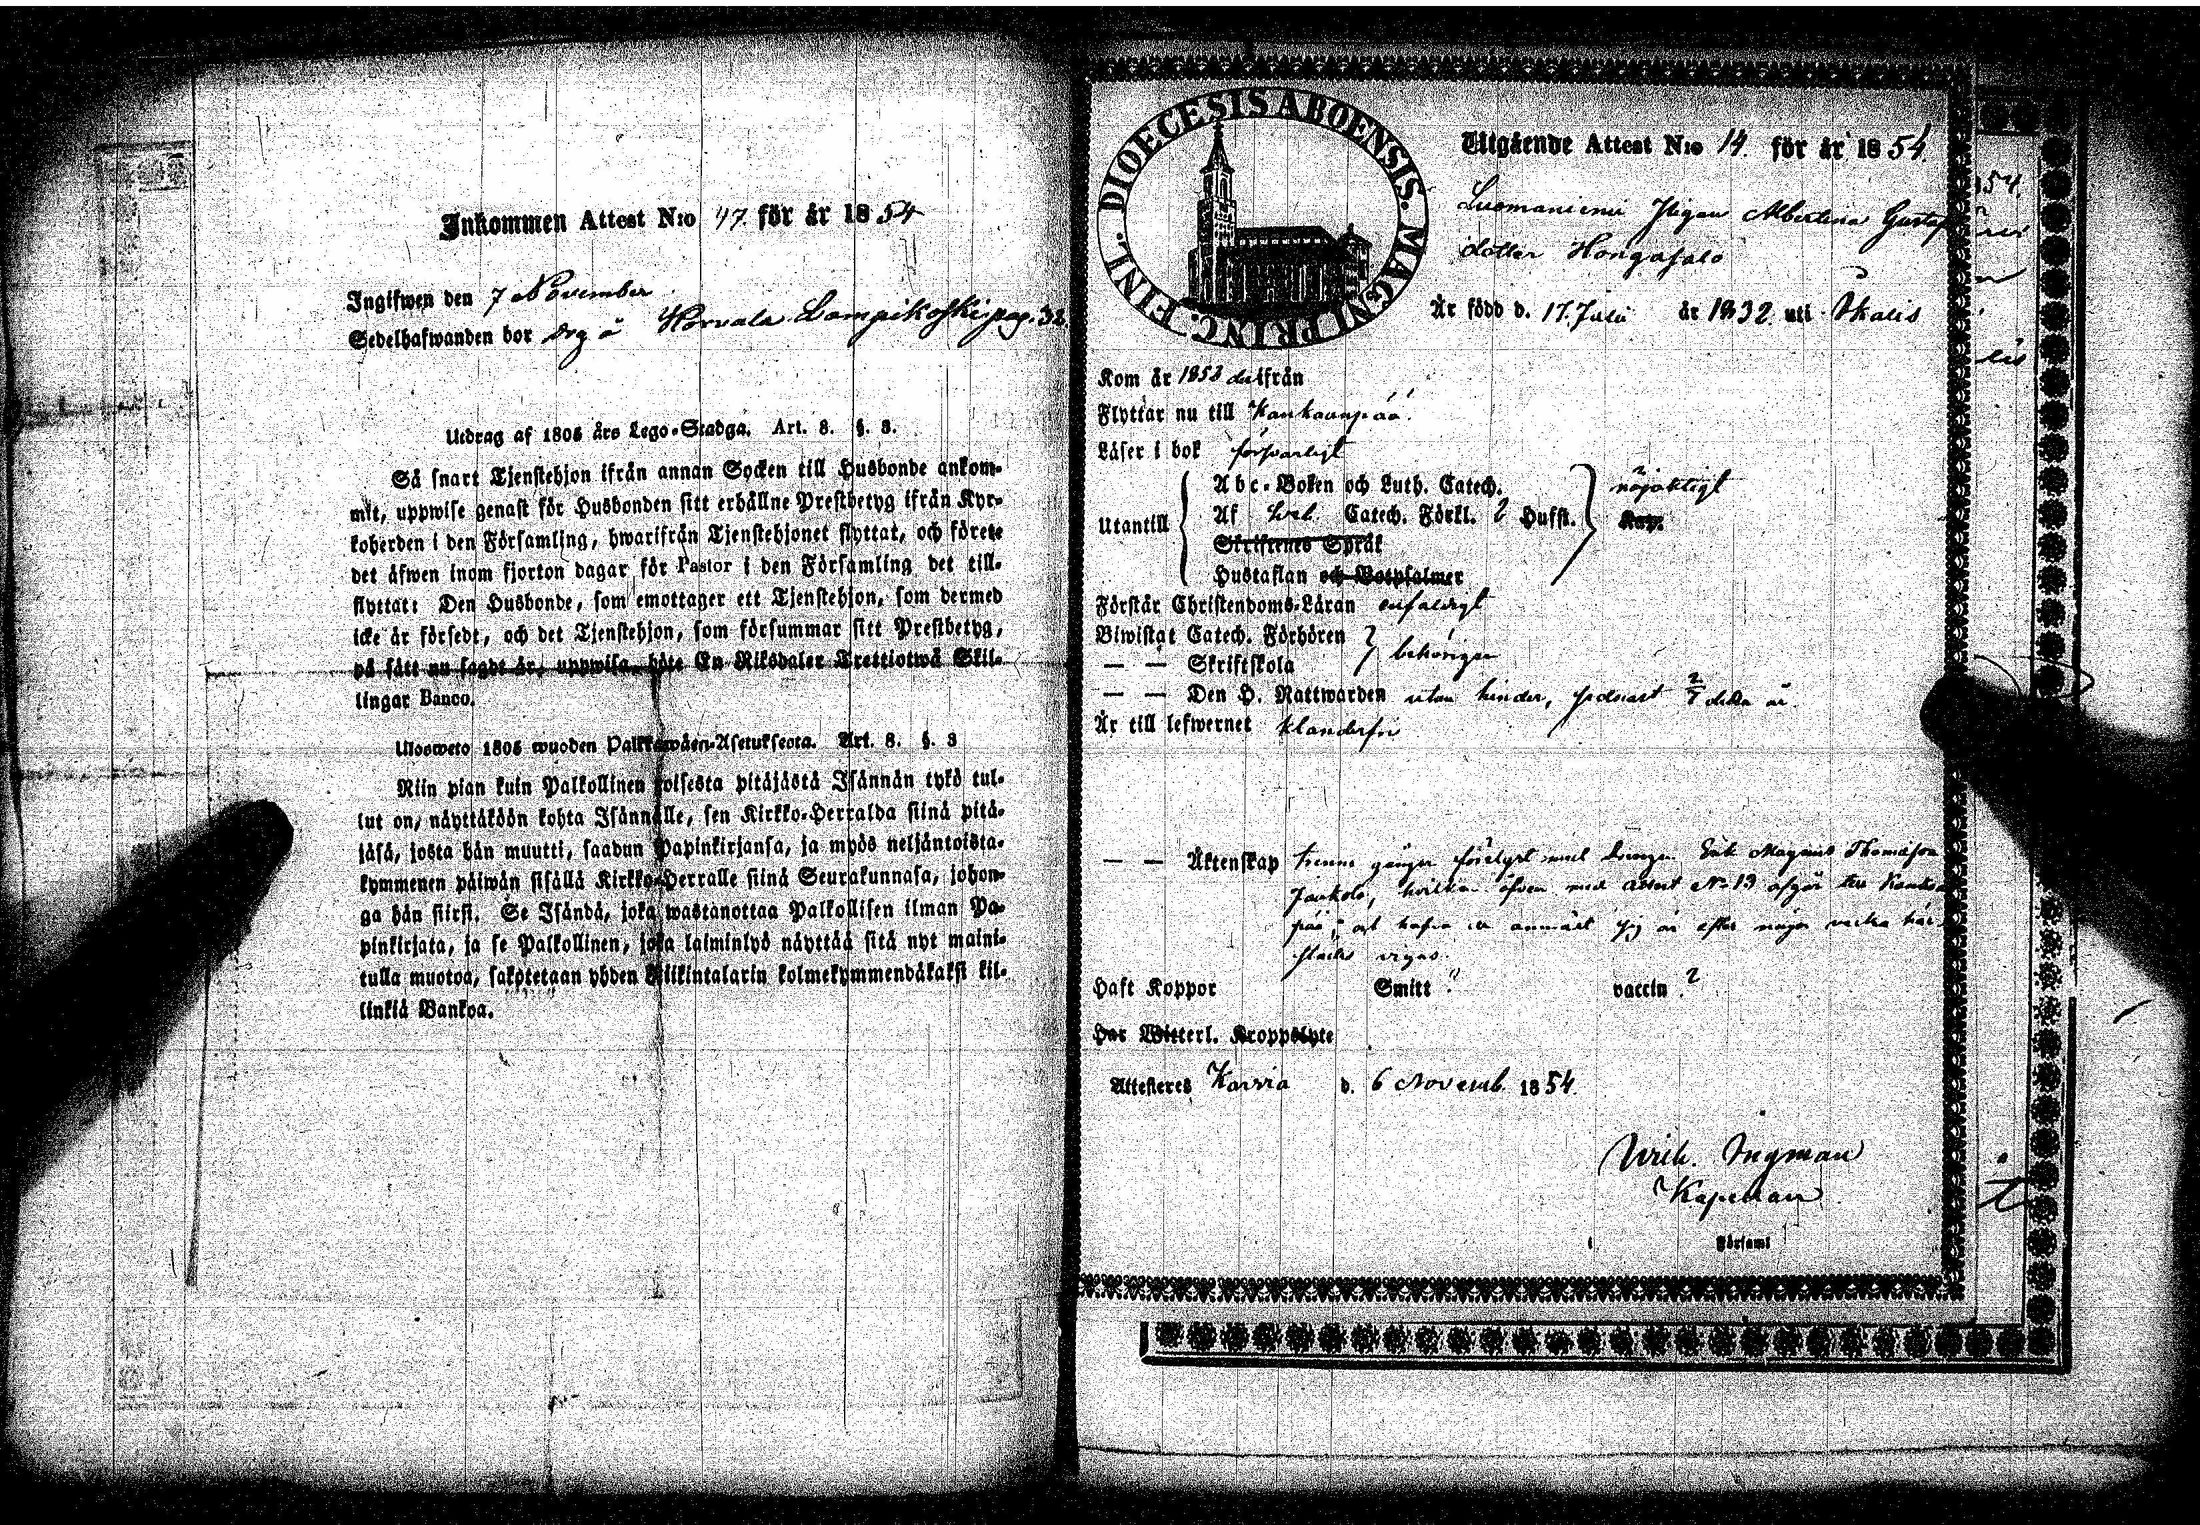 Inkommen Attest N:o 47. för år 1854
Ingifwen den 7 November
Sedelhafwanden bor drg å Horvala Lampikoski pag. 38.
Utdrag af 1805 års Lego-Stadga. Art. 8. §. 3.
Så snart Tjenstehjon ifrån annan Socken till Husbonde ankom-
mit, uppwise genast för Husbonden sitt erhållne Prestbetyg ifrån Kyr-
koherden i den Församling, hwarifrån Tjenstehjonet flyttat, och förete
det äfwen inom fjorton dagar för Pastor i den Församling det till-
flyttat: Den Husbonde, som emottager ett Tjenstehjon, som dermed
icke är försedt, och det Tjenstehjon, som försummar sitt Prestbetyg,
på sätt nu sagdt är, uppwisa, böte En Riksdaler Trettiotwå Skil-
lingar Banco.
Ulosweto 1805 wuoden Palkkawäen-Asetuksesta. Art. 8. §. 3
Niin pian kuin Palkollinen toisesta pitäjästä Isännän tykö tul-
lut on, näyttäköön kohta Isännälle, sen Kirkko-Herralda siinä pitä-
jäsä, josta hän muutti, saadun Papinkirjansa, ja myös neljäntoista-
kymmenen päiwän sisällä Kirkko-Herralle siinä Seurakunnasa, johon-
ga hän siirsi. Se Isändä, joka wastanottaa Palkollisen ilman Pa-
pinkirjata, ja se Palkollinen, joka laiminlyö näyttää sitä nyt maini-
tulla muotoa, sakotetaan yhden Riikintalarin kolmekymmendäkaksi kil-
linkiä Bankoa.
DIOECESIS ABOENSIS. MAGNI PRINC. FINL.
Utgående Attest N:o 14. för år 1854.
Luomaniemi Pigan Albertina Gustafs
dotter Hongasalo
Är född d. 17. Juli år 1832 uti Ikalis
Kom år 1853 ifrån
Flyttar nu till Kankaanpää.
Läser i bok försvarligt
Utantill
Abc-Boken och Luth. Catech. nöjaktigt
Af Catech. Förkl. 2 Hufst. Kap.
Skriftenes Språk
Hustaflan och Botpsalmer
Förstår Christendoms-Läran enfaldigt
Biwistat Catech. Förhören behörigen
— — Skriftskola
— — Den H. Nattwarden utan hinder, sednast detta år.
Är till lefwernet klanderfri
— — Äktenskap trenne gånger förelyst med Drengen Erik Magnus Thomasson
Jaakola, hvilken äfven med attest N:o 13 afgår till Kankaan
pää, och hafva de anmält sig att efter några veckor här-
städes vigas.
Haft Koppor Smitt? vaccin?
Har Witterl. Kroppslyte
Attesteres Karvia d. 6 Novemb. 1854.
Wilh. Ingman
Kapellan
i Församl